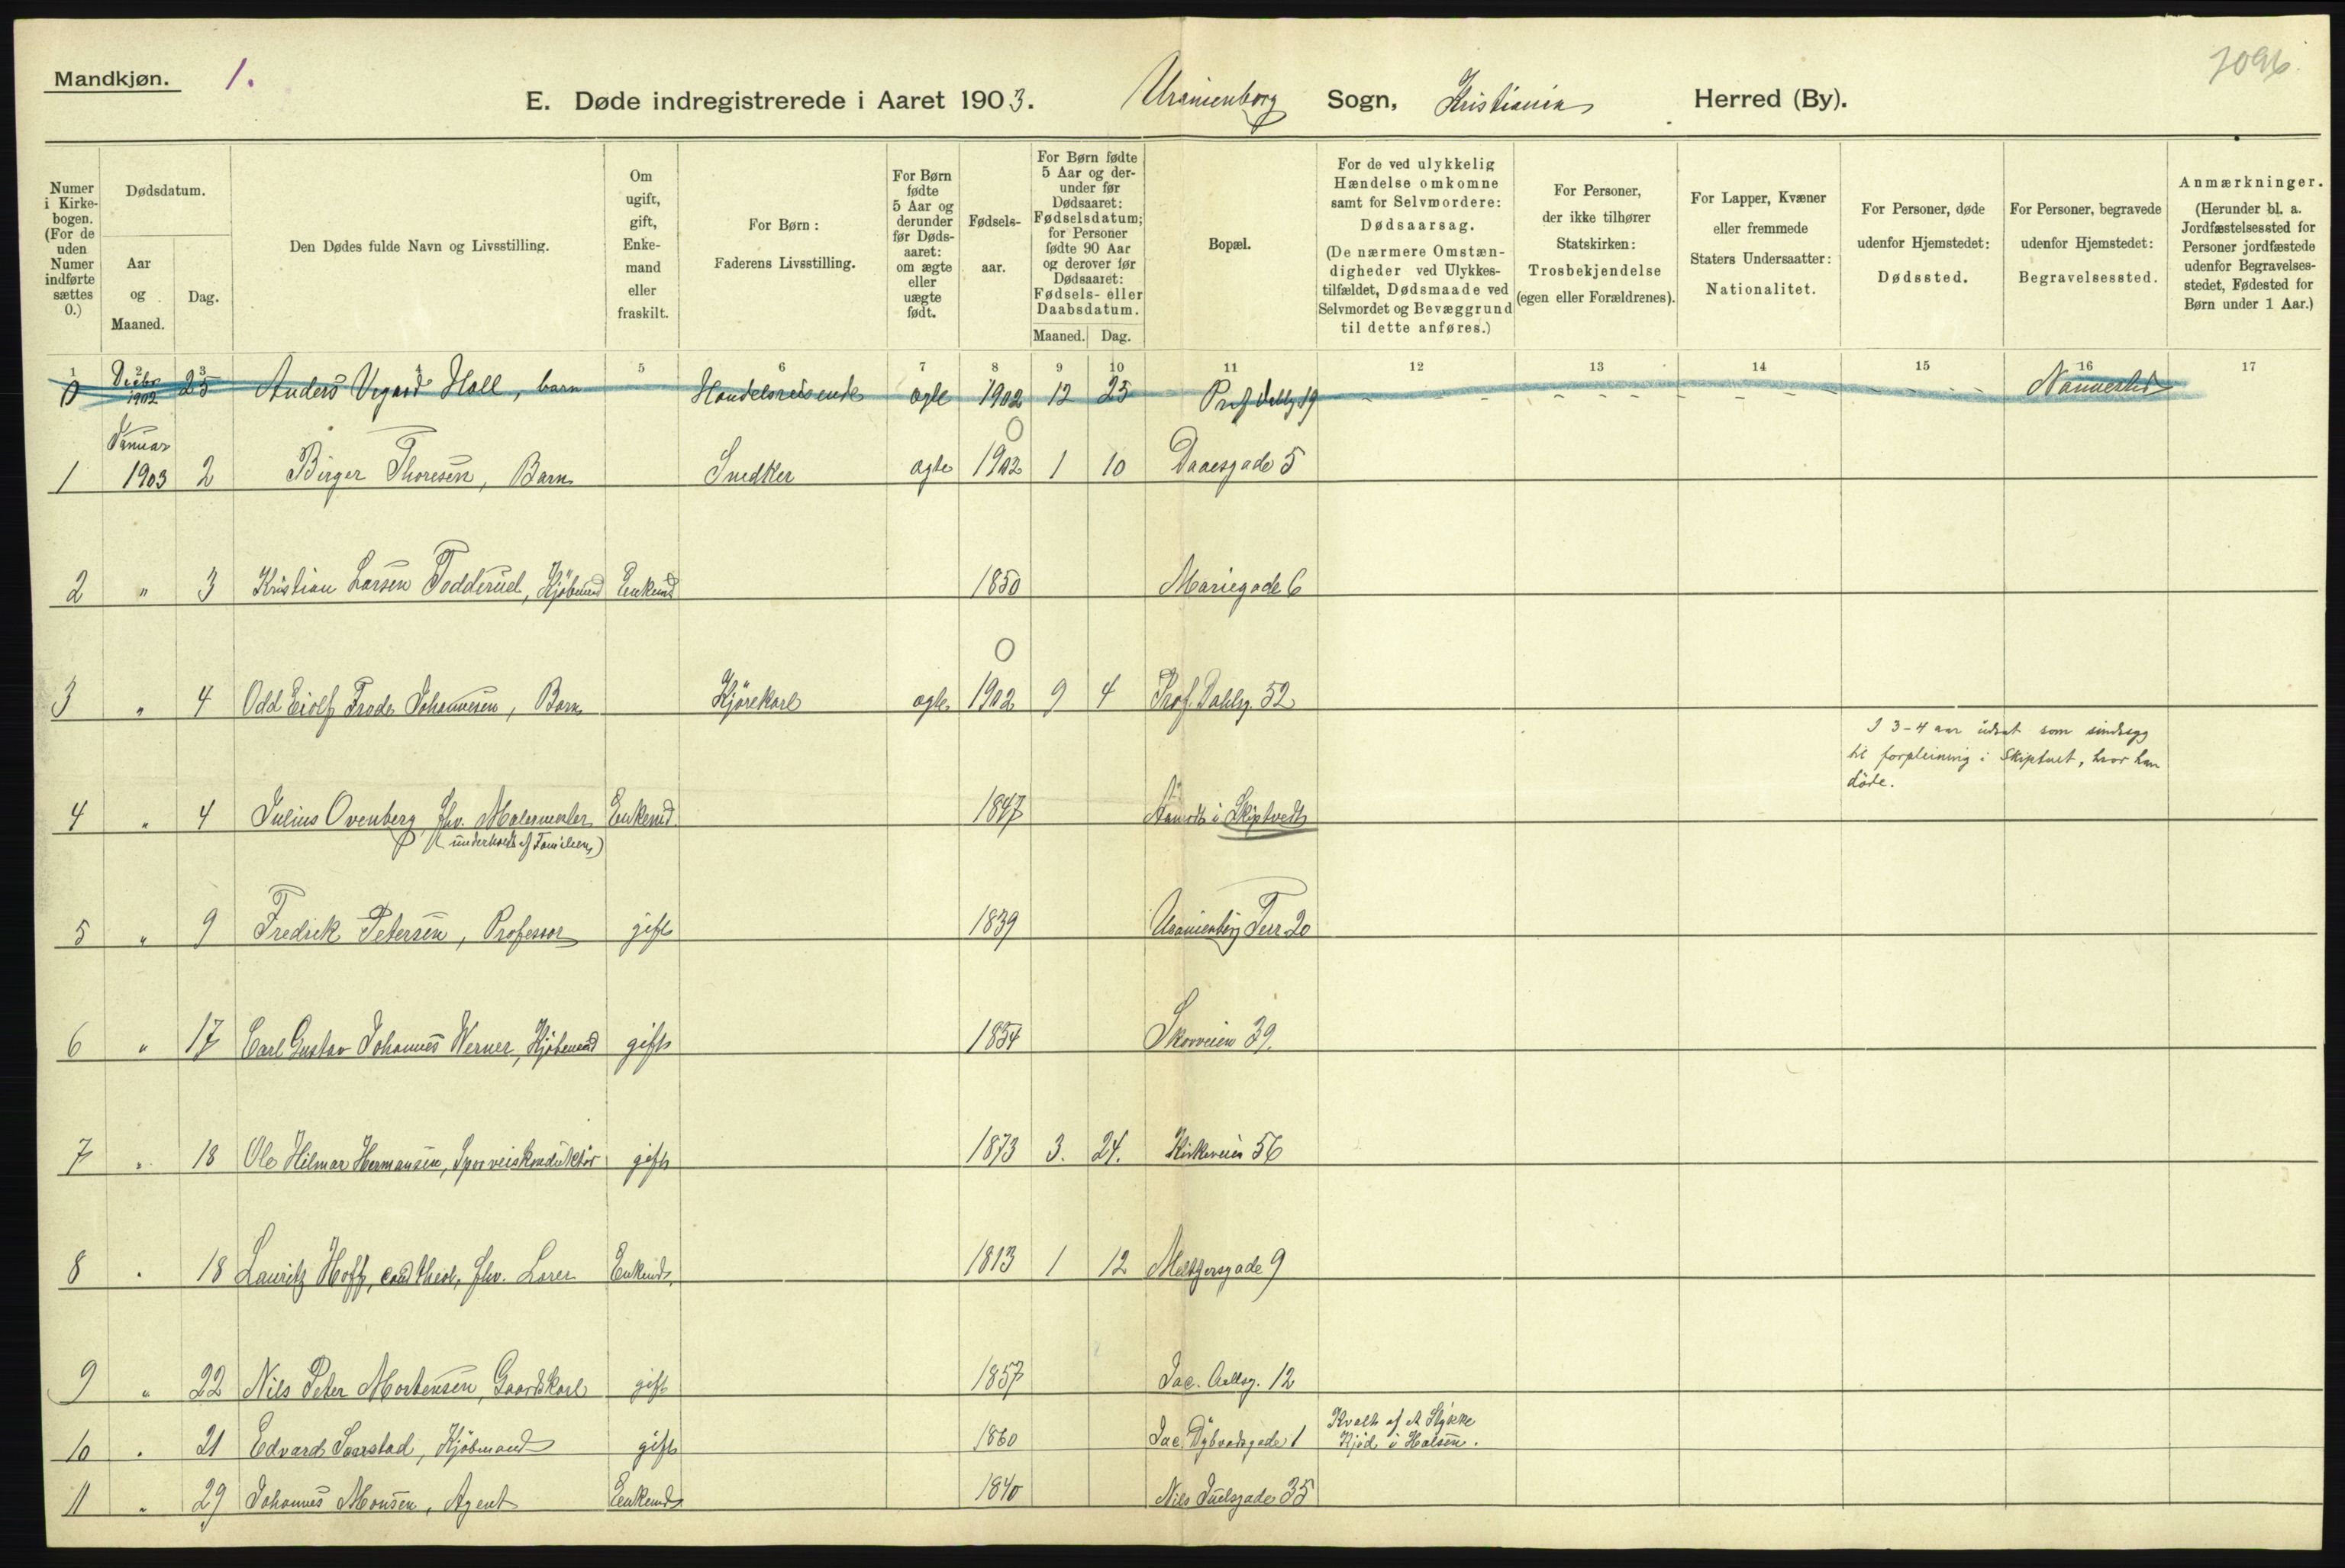 Mandkjøn. 1.
E. Døde indregistrerede i Aaret 1903. Uranienborg Sogn, Kristiania Herred (By).
Numer i Kirke-bogen. (For de uden Numer indførte sættes 0.)
Dødsdatum.
Aar og Maaned.
Dag.
Den Dødes fulde Navn og Livsstilling.
Om ugift, gift, Enke-mand eller fraskilt.
For Børn: Faderens Livsstilling.
For Børn fødte 5 Aar og derunder før Døds-aaret: om ægte eller uægte født.
Fødsels-aar.
For Børn fødte 5 Aar og der-under før Dødsaaret: Fødselsdatum; for Personer fødte 90 Aar og derover før Dødsaaret: Fødsels- eller Daabsdatum.
Maaned. Dag.
Bopæl.
For de ved ulykkelig Hændelse omkomne samt for Selvmordere: Dødsaarsag. (De nærmere Omstæn-digheder ved Ulykkes-tilfældet, Dødsmaade ved Selvmordet og Bevæggrund til dette anføres.)
For Personer, der ikke tilhører Statskirken: Trosbekjendelse (egen eller Forældrenes).
For Lapper, Kvæner eller fremmede Staters Undersaatter: Nationalitet.
For Personer, døde udenfor Hjemstedet: Dødssted.
For Personer, begravede udenfor Hjemstedet: Begravelsessted.
Anmærkninger. (Herunder bl. a. Jordfæstelsessted for Personer jordfæstede udenfor Begravelses-stedet, Fødested for Børn under 1 Aar.)
1 2 3 4 5 6 7 8 9 10 11 12 13 14 15 16 17
0 Decbr 1902 25 Anders Vegard Holl, barn Handelsreisende ægte 1902 12 25 Prof Dahlsg. 19
1 Januar 1903 2 Birger Thoresen, Barn Snedker ægte 1902 0 1 10 Daaesgade 5
2 " 3 Kristian Larsen Fodderud, Kjöbmand Enkemd 1850 Mariegade 6
3 " 4 Odd Eiolf Frode Johannesen, Barn Kjörekarl ægte 1902 0 9 4 Prof. Dahlsg. 52
I 3-4 aar udsat som sindssyg
til forpleining i Skiptvet, hvor han
döde.
4 " 4 Julius Ovenberg, fhv. Malermester Enkemd. 1847 i Skiptvedt
(underholdt af Familien)
5 " 9 Fredrik Petersen, Professor gift 1839 Uranienborg Terr. 20
6 " 17 Carl Gustav Johannes Werner, Kjöbmand gift 1854 Skovveien 39.
7 " 18 Ole Hilmar Hermansen, Sporveiskonduktör gift 1873 3. 24. Kirkeveien 56
8 " 18 Lauritz Hoff, cand theol, fhv. Lærer Enkemd. 1813 1 12 Meltzersgade 9
9 " 22 Nils Peter Mortensen, Gaardskarl gift 1857 Jac. Aallsg. 12
10 " 21 Edvard Saxrstad, Kjöbmand gift 1860 Jac. Dybvadsgade 1 Kvalt af et Stykke
Kjöd i Halsen.
11 " 29 Johannes Monsen, Agent Enkemd 1840 Niels Juelsgade 35